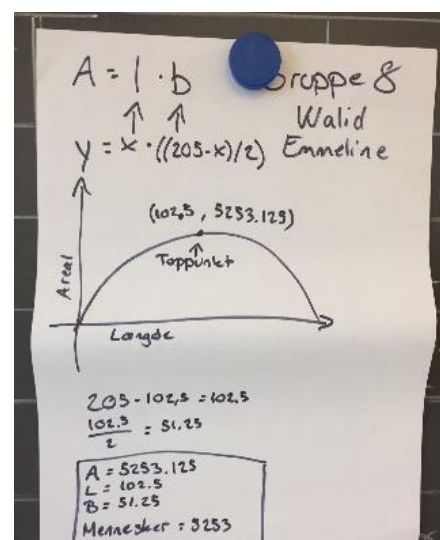 A = l · b
Gruppe 8
Walid
Emmeline
y = x · ((205-x)/2)
(102,5 , 5253.125)
Toppunkt
Areal
Længde
205 - 102,5 = 102.5
102.5/2 = 51.25
A = 5253.125
L = 102.5
B = 51.25
Mennesker = 5253